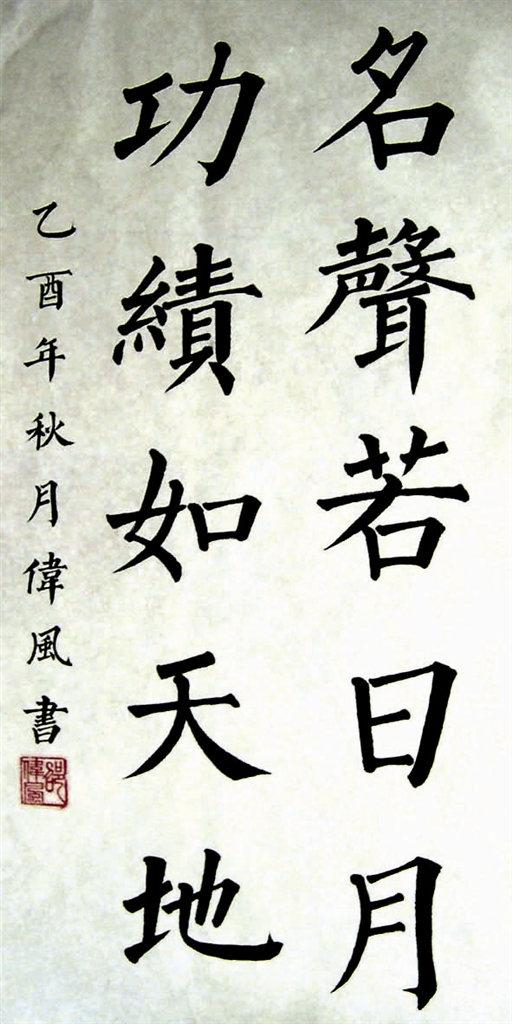 名聲若日月
功績如天地
乙酉年秋月偉風書